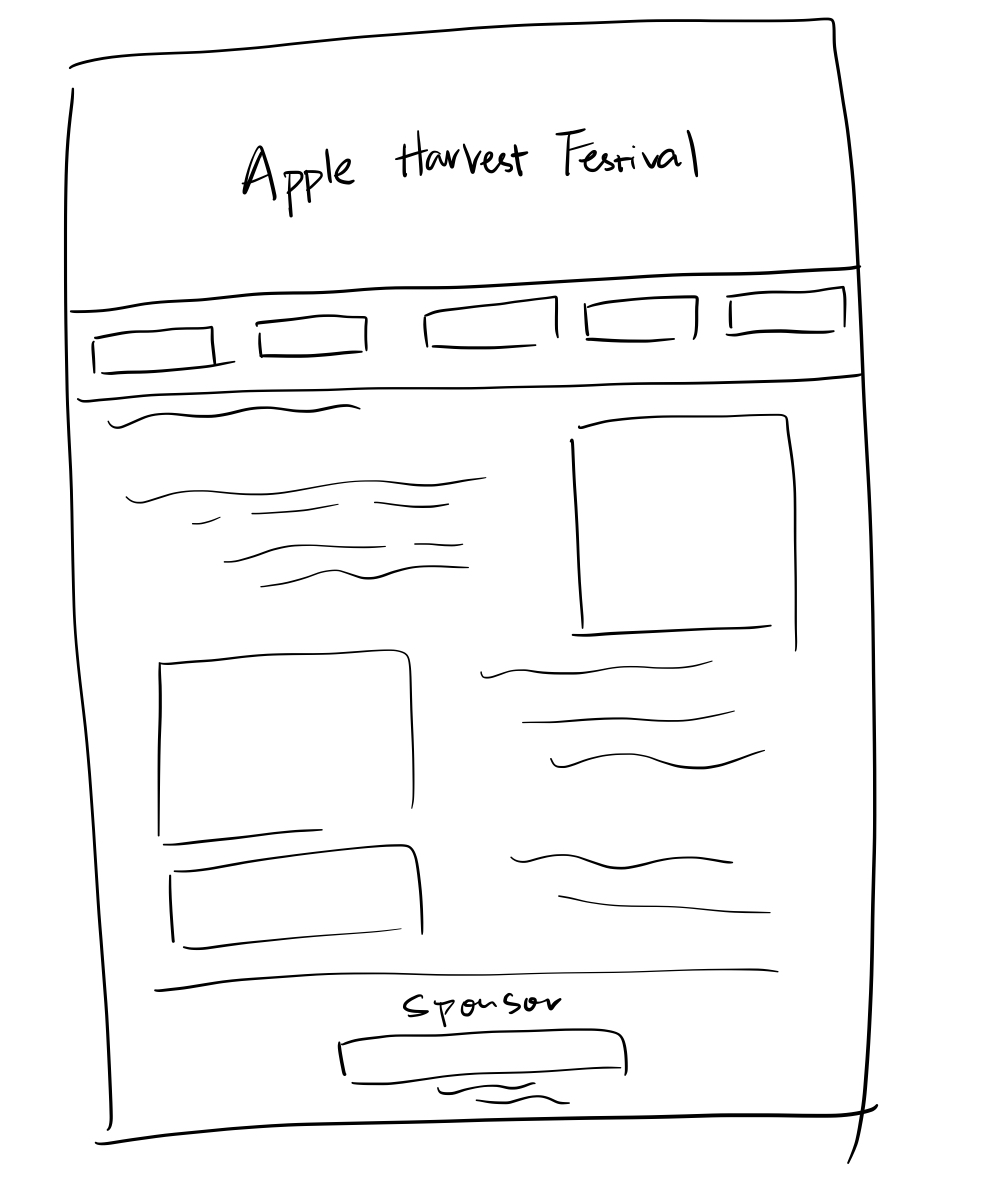 Apple Harvest Festival
Sponsor